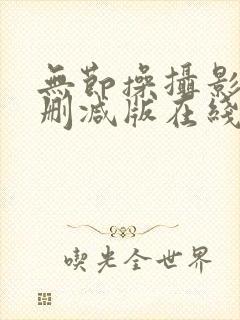 無節操攝影
刪減版在綫
喫光全世界